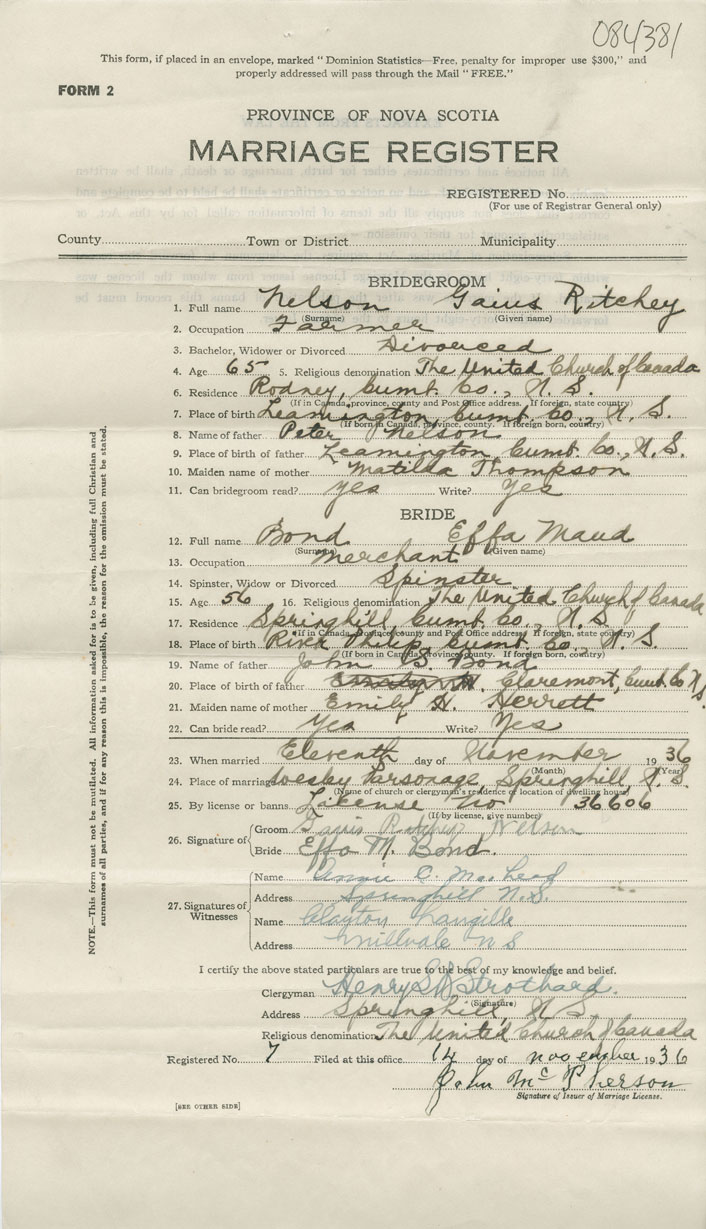 084381
This form, if placed in an envelope, marked "Dominion Statistics—Free, penalty for improper use $300," and
properly addressed will pass through the Mail "FREE."
FORM 2
PROVINCE OF NOVA SCOTIA
MARRIAGE REGISTER
REGISTERED No.
(For use of Registrar General only)
County Town or District Municipality
BRIDEGROOM
1. Full name Nelson Gaius Ritchey
(Surname) (Given name)
2. Occupation Farmer
3. Bachelor, Widower or Divorced Divorced
4. Age 65 5. Religious denomination The United Church of Canada
6. Residence Rodney, Cumb. Co., N. S.
(If in Canada, province, county and Post Office address. If foreign, state country)
7. Place of birth Leamington, Cumb. Co., N. S.
(If born in Canada, province, county. If foreign born, country)
8. Name of father Peter Nelson
9. Place of birth of father Leamington Cumb. Co., N. S.
10. Maiden name of mother Matilda Thompson
11. Can bridegroom read? Yes Write? Yes
BRIDE
12. Full name Bond Effa Maud
(Surname) (Given name)
13. Occupation Merchant
14. Spinster, Widow or Divorced Spinster
15. Age 56 16. Religious denomination The United Church of Canada
17. Residence Springhill, Cumb. Co., N. S.
(If in Canada, Province, county and Post Office address. If foreign, state country)
18. Place of birth River Philip, Cumb. Co., N. S.
(If born in Canada, Province, county. If foreign born, country)
19. Name of father John S. Bond
20. Place of birth of father Claremont, Cumb. Co N. S.
21. Maiden name of mother Emily H. Herrett
22. Can bride read? Yes Write? Yes
23. When married Eleventh day of November 1936
(Month) (Year)
24. Place of marriage Wesley Parsonage, Springhill, N. S.
(Name of church or clergyman's residence or location of dwelling house)
25. By license or banns License No 36606
(If by license, give number)
26. Signature of Groom Gaius Nelson
Bride Effa M. Bond.
27. Signatures of Witnesses
Name Annie C. MacLeod
Address Springhill N.S.
Name Clayton Langille
Address Millvale N S
I certify the above stated particulars are true to the best of my knowledge and belief.
Clergyman Henry S. B. Strothard.
(Signature)
Address Springhill, N. S.
Religious denomination The United Church of Canada
Registered No. 7 Filed at this office 14 day of November 1936
John McPherson
Signature of Issuer of Marriage License.
[SEE OTHER SIDE]
NOTE.—This form must not be mutilated. All information asked for is to be given, including full Christian and
surnames of all parties, and if for any reason this is impossible, the reason for the omission must be stated.